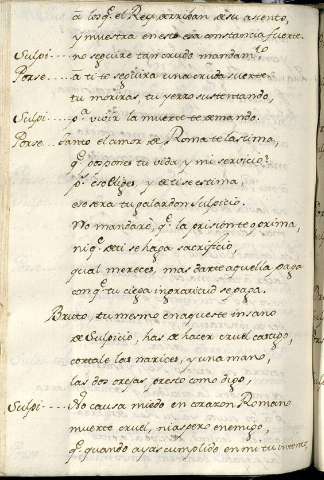 á los q̃ el Rey derriban de su asiento,
y muestra en esto esa constancia fuerte.
Sulpi.... no seguire tan crudo mandamto
Porse.... a ti te seguira una cruda suerte
tu moriras, tu yerro sustentando,
Sulpi.... pa vivir la muerte te demando.
Porse... Tanto el amor de Roma te lastima,
q̃ pospones tu vida y mi servicio?
ps eso eliges, y de ti se estima,
ese sera tu galardon Sulpicio.
No mandarè, q̃ la prision te oprima,
ni q̃ de ti se haga sacrificio,
qual mereces, mas darte aquella paga
con q̃ tu ciega ingratitud se paga.
Bruto, tu mesmo en aqueste insano
de Sulpicio, has de hacer cruel castigo,
cortale las narices, y una mano,
las dos orejas, presto como digo,
Sulpi.... No causa miedo en corazon Romano
muerte cruel, ni aspero enemigo,
q̃ quando ayas cumplido en mi tu intento,